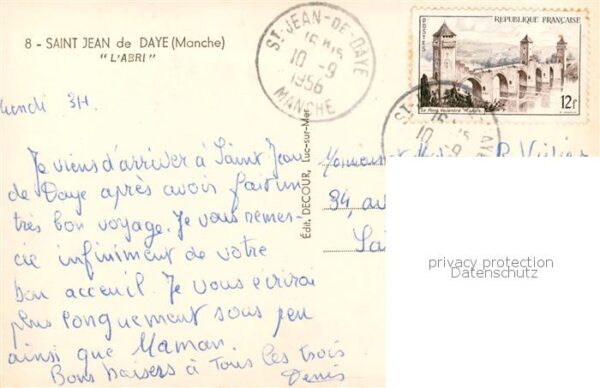 8 - SAINT JEAN de DAYE (Manche)
"L'ABRI"
ST JEAN-DE-DAYE
10-9
1956
MANCHE
RÉPUBLIQUE FRANÇAISE
POSTES
Le Pont Valentré Cahors
12F
10 9
lundi 3H
Je viens d'arriver à Saint Jean
de Daye après avoir fait un
très bon voyage. Je vous remer-
cie infiniment de votre
bon acceuil. Je vous écrirai
plus longuement sous peu
ainsi que Maman.
Bons baisers à Tous les trois
Denis
Édit. DECOUR, Luc-sur-Mer
34, av
privacy protection
Datenschutz